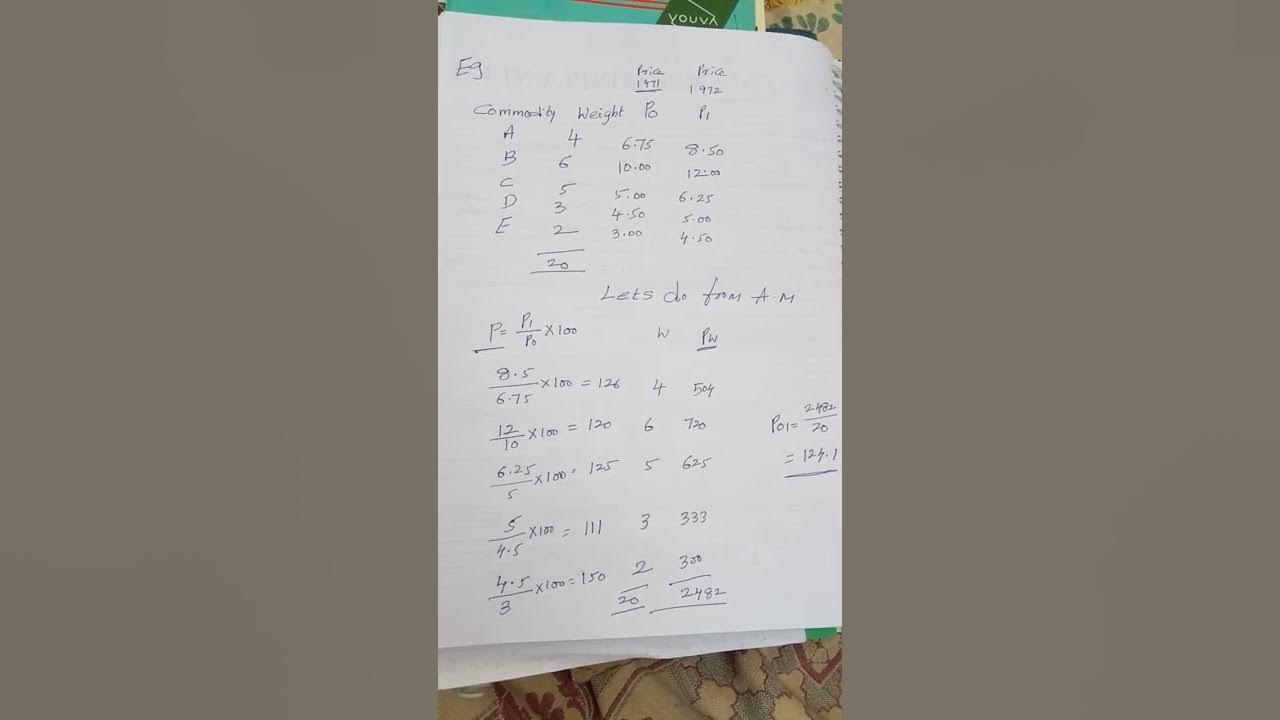 Eg
Price Price
1971 1972
Commodity Weight P0 P1
A 4 6.75 8.50
B 6 10.00 12.00
C 5 5.00 6.25
D 3 4.50 5.00
E 2 3.00 4.50
20
Lets do from A.M
P = P1/P0 × 100 W PW
8.5/6.75 × 100 = 126 4 504
12/10 × 100 = 120 6 720
6.25/5 × 100 = 125 5 625
5/4.5 × 100 = 111 3 333
4.5/3 × 100 = 150 2 300
20 2482
P01 = 2482/20
= 124.1